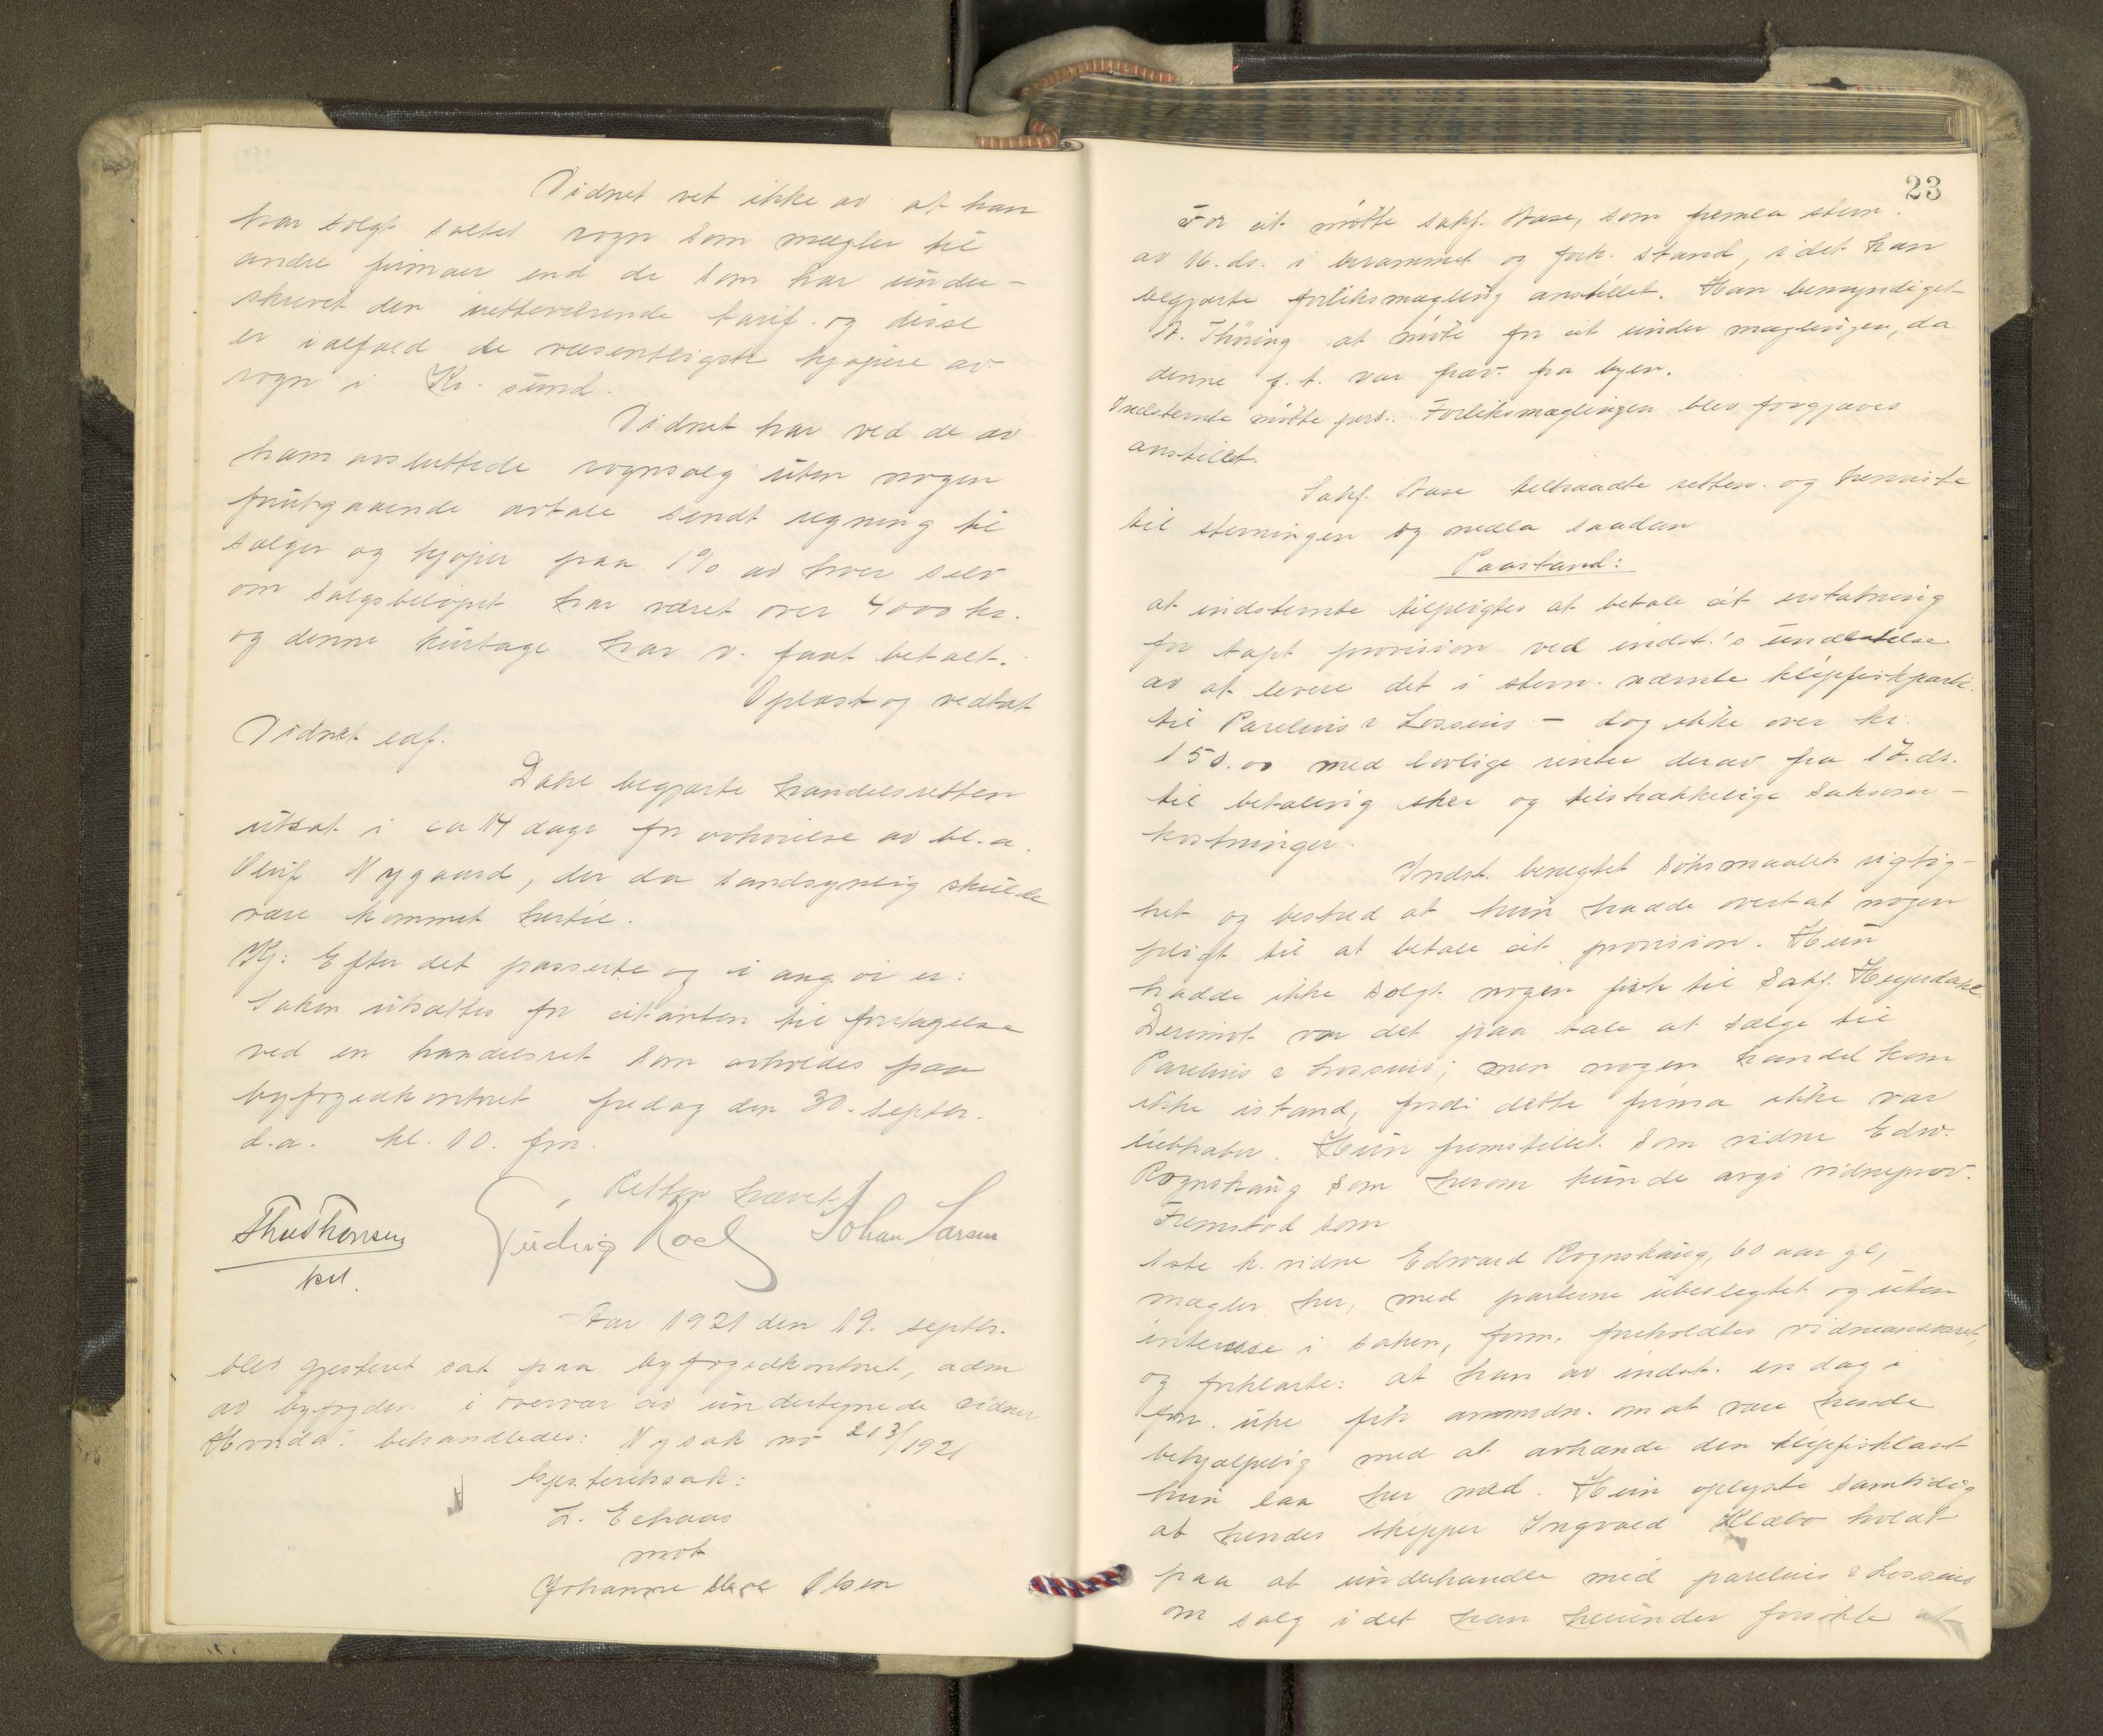 Vidnet vet ikke av at han
har solgt saltet rogn som mægler til
andre firmaer end de som har under-
skrevet den iretteværende tarif. og disse
er ialfald de væsentligste kjøpere av
rogn i Kr. sund.
Vidnet har ved de av
ham avsluttede rognsalg uten nogen
forutgaaende avtale sendt regning til
sælger og kjøper paa 1% av hver selv
om salgsbeløpet har været over 4000 kr.
og denne kurtage har v. faat betalt.
Oplæst og vedtat
Vidnet eaf.
Dahl begjærte handelsretten
utsat i ca 14 dage for avhørelse av bl. a.
Oluf Nygaard, der da sandsynlig skulde
være kommet hertil.
Kj: Efter det passerte og i ang. vi er:
Saken utsættes for citanten til foretagelse
ved en handelsret som avholdes paa
byfogedkontoret fredag den 30. septbr.
d.a. kl. 10. fm.
Retten hævet
Johan Larsen
Aar 1921 den 19. septbr.
blev gjesteret sat paa byfogedkontoret, adm
av byfogden i overvær av undertegnede vidner
Hvorda: behandledes: Ny sak no 213/1921
Gjesteretssak:
L. Echaas
mot
Johanne Olsen
23
For cit. møtte sakf. Aase, som fremla stevn.
av 16. ds. i berammet og fork. stand, idet han
begjærte forliksmægling anstillet. Han bemyndiget
A. Thøring at møte for cit under mæglingen, da
denne f. t. var frav. fra byen.
Indstevnte møtte pers. Forliksmæglingen blev forgjæves
anstillet.
Sakf. Aase tiltraadte retten. og henviste
til stevningen og nedla saadan
Paastand:
at indstevnte tilpligtes at betale cit erstatning
for tapt provision ved indst.'s undlatelse
av at levere det i stevn. nævnte klipfiskparti
til Parelius & Lossius – dog ikke over kr.
150.00 med lovlige renter derav fra 17. ds.
til betaling sker og tilstrækkelige saksom-
kostninger.
Indst. benegtet søksmaalets rigtig-
het og bestred at hun hadde overtat nogen
pligt til at betale cit. provision. Hun
hadde ikke solgt nogen fisk til Sakf. Heyerdahl.
Derimot var det paa tale at sælge til
Parelius & Lossius; men nogen handel kom
ikke istand, fordi dette firma ikke var
liebhaber. Hun fremstillet som vidne Edw.
Rognskaug som herom kunde avgi vidneprov.
Fremstod som
1ste k. vidne Edward Rognskaug, 60 aar gl,
mægler her, med parterne ubeslegtet og uten
interesse i saken, form. foreholdtes vidneansvaret,
og forklarte: at han av indst. en dag i
forr. uke fik anmodn. om at være hende
behjælpelig med at avhænde den klipfisklast
hun laa her med. Hun oplyste samtidig
at hendes skipper Ingvald Klæbo holdt
paa at underhandle med parelius & Lossius
om salg idet han herunder forsøkte at